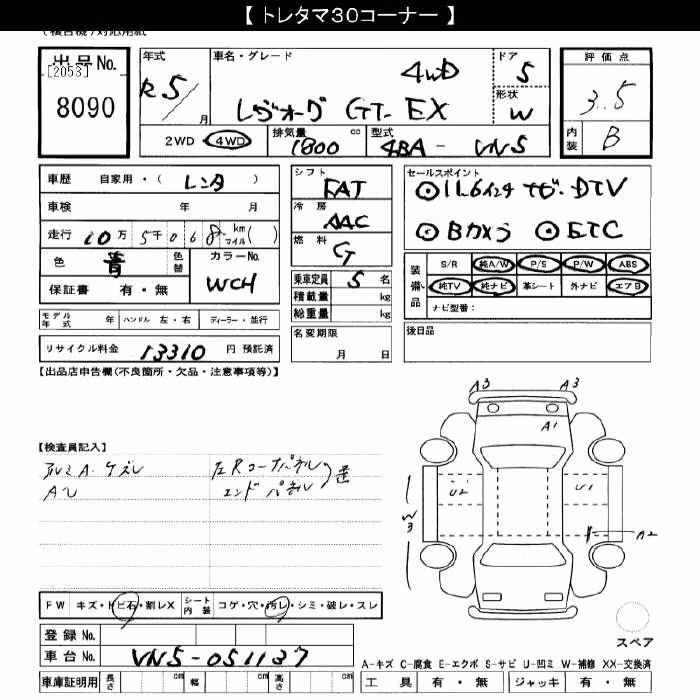 【 トレタマ30コーナー 】
(複合機)対応用紙
出品No.
[2053]
8090
年式
R5/
月
車名・グレード
4WD
レヴォーグ GT-EX
ドア
5
形状
W
評価点
3.5
内装
B
2WD 4WD
排気量
1800 cc
型式
4BA - VN5
車歴 自家用・( レンタ )
車検 年 月
走行 10万 5千 0 6 8 km マイル( )
色 青 色替
カラーNo.
WCH
保証書 有・無
シフト
FAT
冷房
AAC
燃料
G
乗車定員 5 名
積載量 kg
総重量 kg
セールスポイント
⊙11.6インチナビ・DTV
⊙Bカメラ ⊙ETC
装備品
S/R 純A/W P/S P/W ABS
純TV 純ナビ 革シート 外ナビ エアB
ナビ型番:
モデル年式 年 ハンドル 左・右 ディーラー・並行
名変期限
月 日
後日品
リサイクル料金 13310 円 預託済
【出品店申告欄(不良箇所・欠品・注意事項等)】
【検査員記入】
アルミA・ケズレ
左Rコーナーパネル
エンドパネル
A3 A3
A1
U2 U1
W3
A2
スペア
FW キズ・トビ石・割レX
シート内装 コゲ・穴・汚レ・シミ・破レ・スレ
登録No.
車台No. VN5-051137
車庫証明用 長さ cm 幅 cm 高さ cm
A-キズ C-腐食 E-エクボ S-サビ U-凹ミ W-補修 XX-交換済
工具 有・無 ジャッキ 有・無